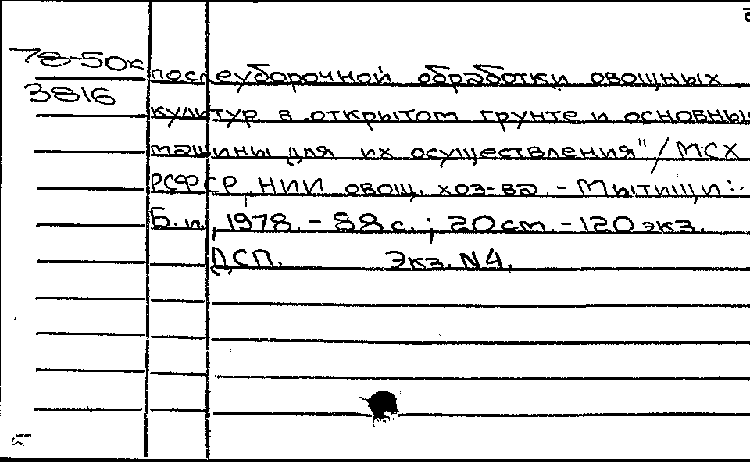 78-50к
3816
послеуборочной обработки овощных
культур в открытом грунте и основные
машины для их осуществления"/МСХ
РСФСР, НИИ овощ. хоз-ва. - Мытищи:
Б.и., 1978. - 88 с.; 20 см. - 120 экз.
ДСП. Экз. N4.